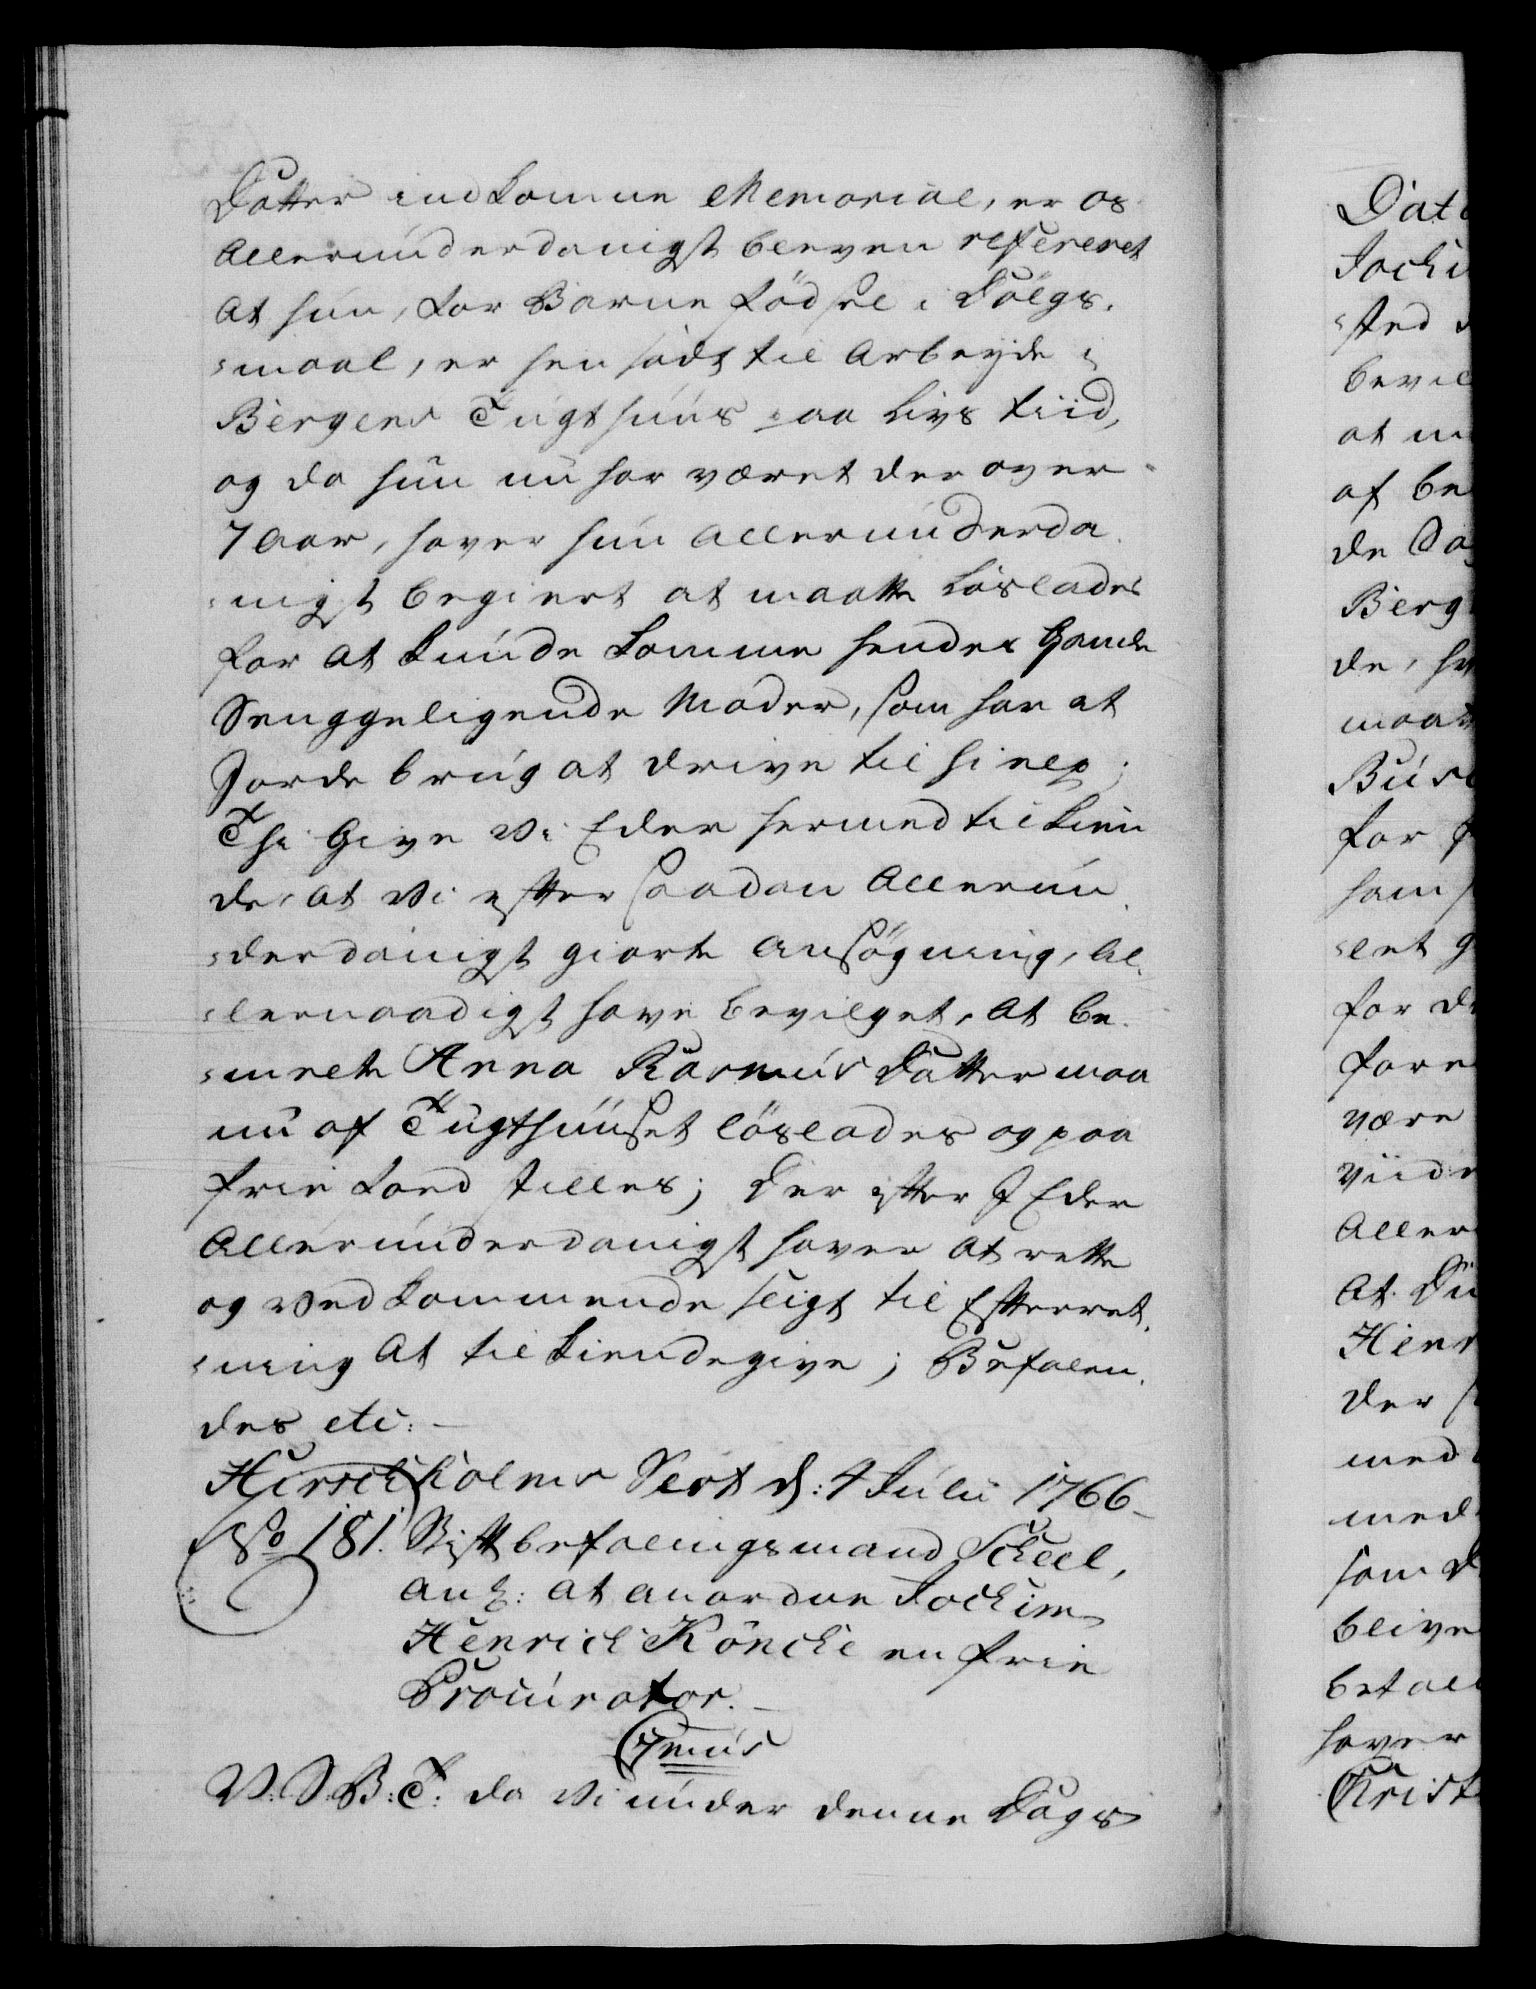 Datter indkomne Memorial, er os
Allerunderdanigst bleven refereret
At hun, for Barne fødsel i Dølgs-
-maal, er hensadt til Arbeyde i
Bergens Tugthuus paa Livs tiid,
og da hun nu har været der over
7 Aar, haver hun allerunderda-
-nigst begiert at maatte Løslades
for at kunde komme hendes Gamle
Senggeligende Moder, som har et
Jordebrug at drive til hielp;
Thi Give Vi Eder hermed tilkien
de, at Vi efter saadan Allerun-
-derdanigst giorte Ansøgning, Al-
-lernaadigst have bevilget, at be-
-melte Anna Rasmus Datter maa
nu af Tugthuuset løslades og paa
frie Foed stilles; Der efter I Eder
Allerunderdanigst haver at rette
og vedkommende sligt til Efterret-
-ning at tilkiendegive; Befalen-
des etc:
Hirschholms Slot d: 4 Julii 1766
No 181. Stiftbefalingsmand Scheel,
anl: at anordne Jochim
Henrich Köncke en frie
Procurator.
7mus
V: S: B: T: da Vi under denne Dags
Dat
Jochi
-sted
bevil
at m
af be
de Sa
Berg
de, h
maat
for
-let g
for d
være
viide
Aller
At Du
Henr
der
med
med
som d
blive
betal
haver
Christ